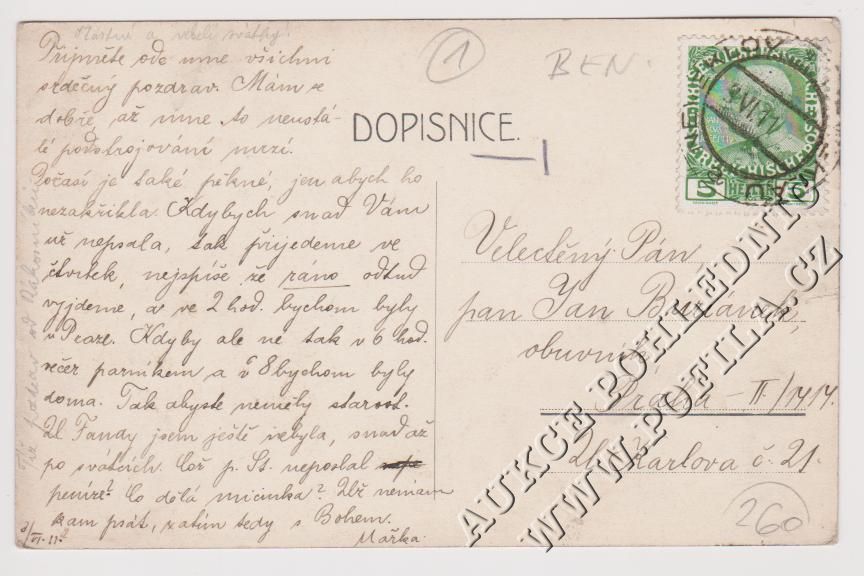 Šťastné a veselé svátky!
Přijměte ode mne všichni
srdečný pozdrav. Mám se
dobře, až mne to neustá-
lé podstrojování mrzí.
Počasí je také pěkné, jen abych ho
nezakřikla. Kdybych snad Vám
už nepsala, tak přijedeme ve
čtvrtek, nejspíše že ráno odtud
vyjdeme, a ve 2 hod. bychom byly
v Praze. Kdyby ale ne tak v 6 hod.
večer parníkem a v 8 bychom byly
doma. Tak abyste neměly starost.
U Fandy jsem ještě nebyla, snad až
po svátcích. Což p. St. neposlal
peníze? Co dělá micinka? Už nemám
kam psát, zatím tedy s Bohem.
Mařka.
3/VI. 11.
1
BEN.
DOPISNICE.
5 HELLER 5
9 VI 11
Velectěný Pán
pan Jan
obuvník
Praha - II/1414.
Ul. Karlova č. 21.
260
AUKCE POHLEDNIC
WWW.POFILA.CZ